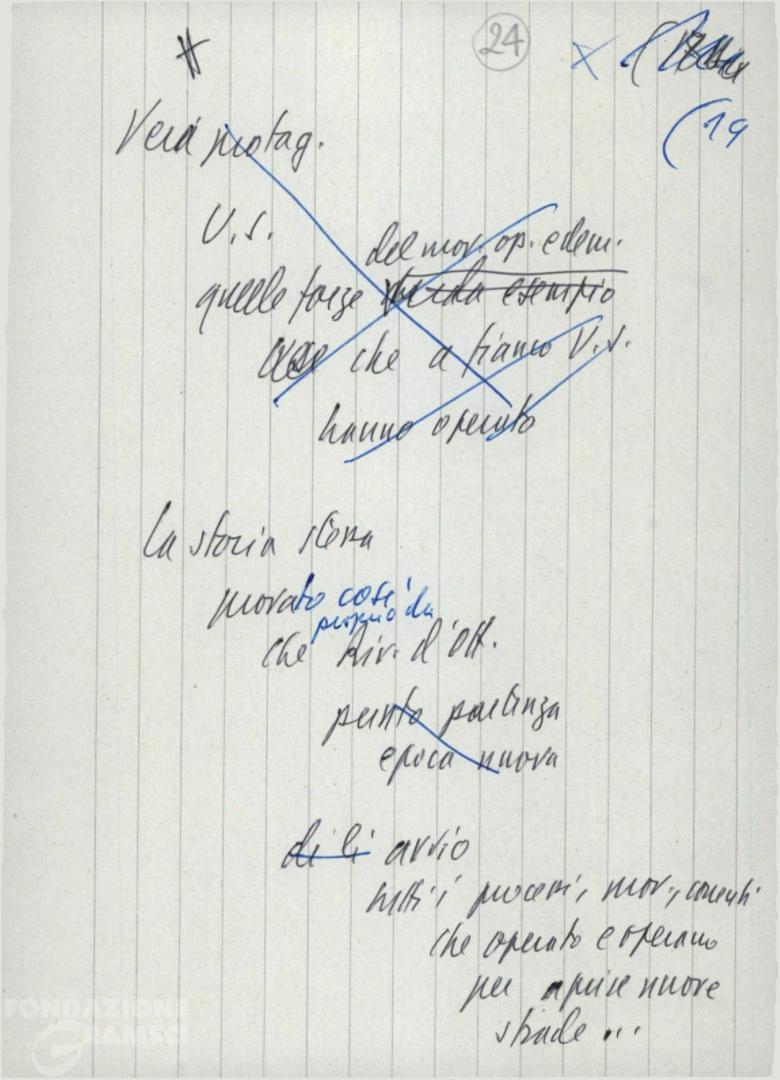 24
(19
Veri protag.
U.S.
del mov. op. e dem.
quelle forze esempio
che a fianco U.S.
hanno operato
La storia stessa
provato così
proprio da
che Riv. d'Ott.
punto partenza
epoca nuova
di lì avvio
tutti i processi, mov., correnti
che operato e operano
per aprire nuove
strade ...
FONDAZIONE
GRAMSCI